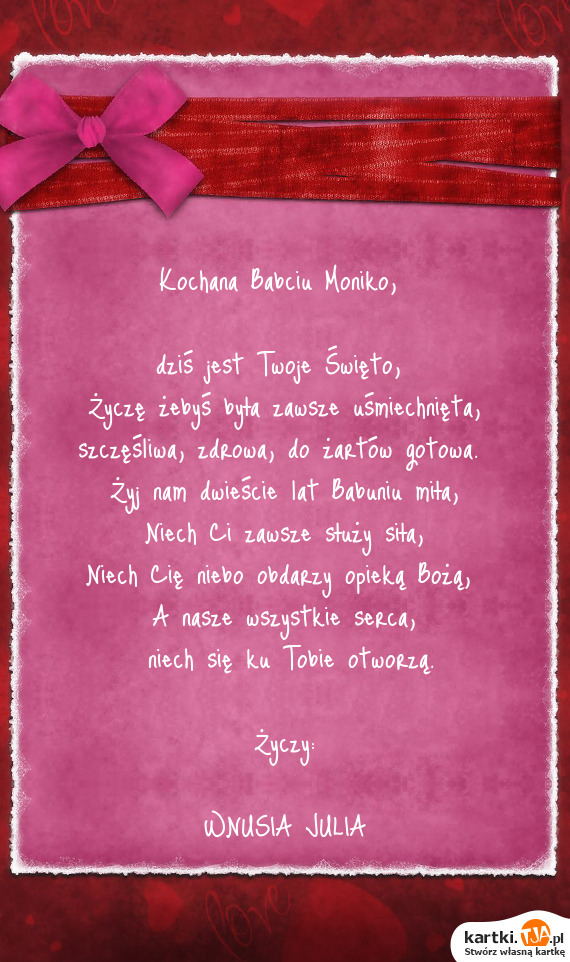 love
love
Kochana Babciu Moniko,
dziś jest Twoje Święto,
Życzę żebyś była zawsze uśmiechnięta,
szczęśliwa, zdrowa, do żartów gotowa.
Żyj nam dwieście lat Babuniu miła,
Niech Ci zawsze służy siła,
Niech Cię niebo obdarzy opieką Bożą,
A nasze wszystkie serca,
niech się ku Tobie otworzą.
Życzy:
WNUSIA JULIA
love
kartki.TJA.pl
Stwórz własną kartkę